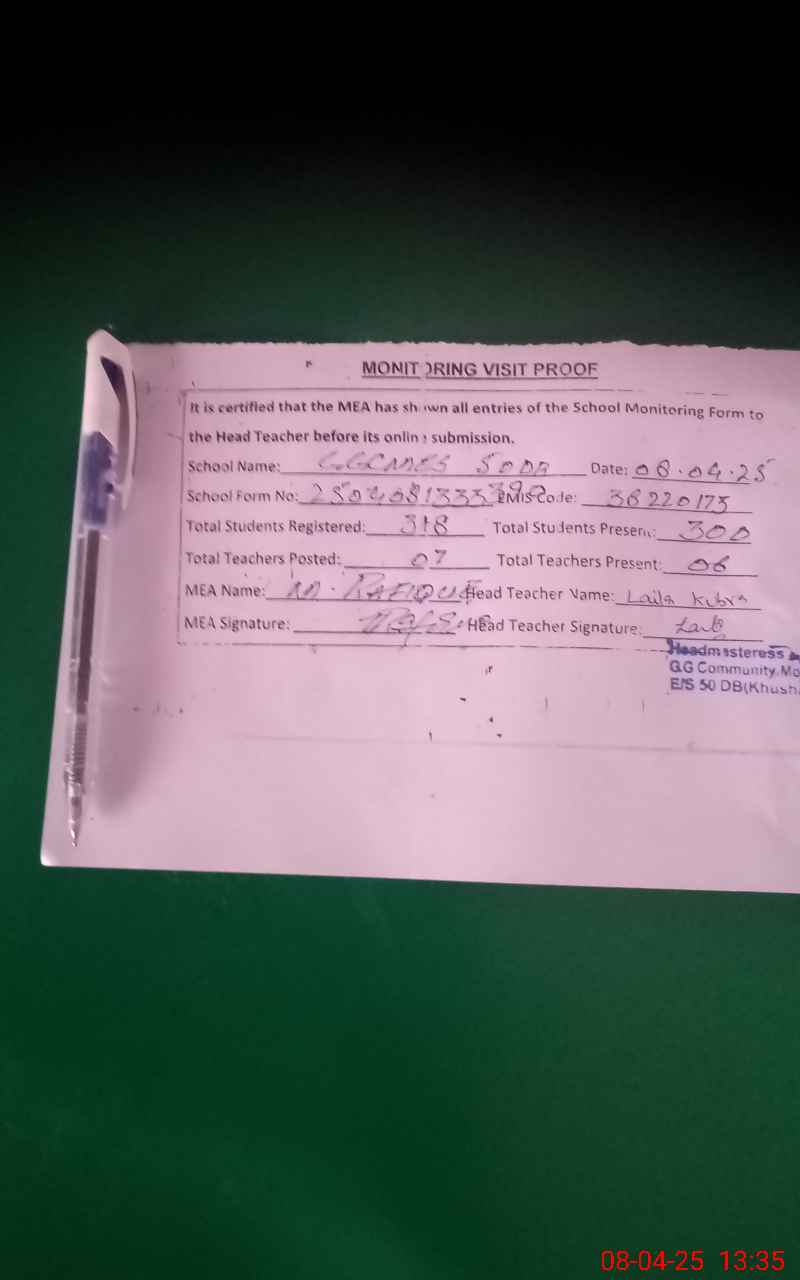 MONITORING VISIT PROOF
It is certified that the MEA has shown all entries of the School Monitoring Form to
the Head Teacher before its online submission.
School Name: GGCMES 50DB Date: 08.04.25
School Form No: EMIS Code: 38220175
Total Students Registered: 318 Total Students Present: 300
Total Teachers Posted: 07 Total Teachers Present: 06
MEA Name: M. RAFIQUE Head Teacher Name: Laila Kubra
MEA Signature: Head Teacher Signature: Laila
Headmisteress
G.G Community. Mo
E/S 50 DB(Khush
08-04-25 13:35